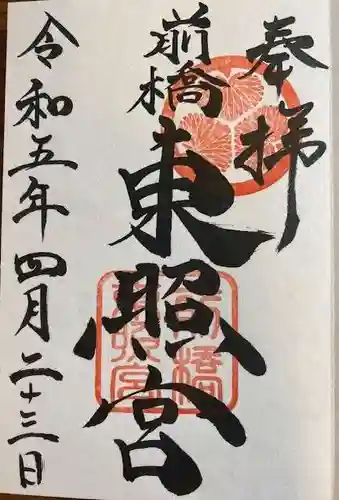 奉拝
前橋
東照宮
令和五年四月二十三日
前橋
東照宮